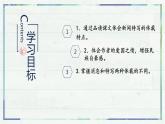 学习目标
Contents
1 1、通过品读课文体会新闻特写的体裁特点。
2 2、体会作者的爱国之情，增强民族自豪感。
3 3、掌握消息和特写两种体裁的不同。